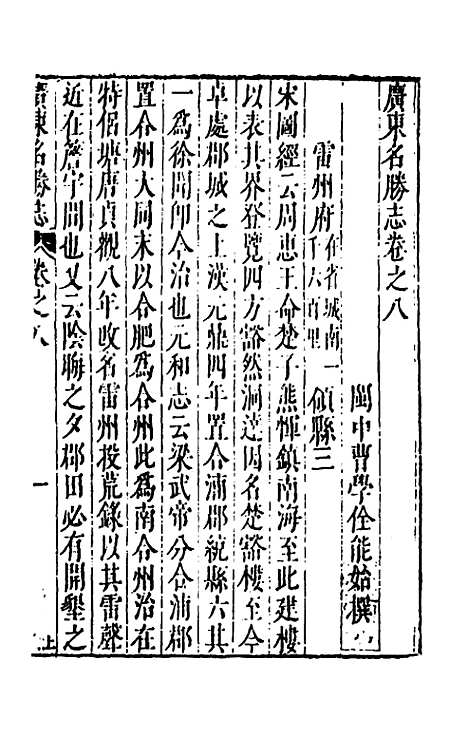 廣東名勝志卷之八
閩中曹學佺能始撰
雷州府在省城南一千六百里領縣三
宋圖經云周惠王命楚子熊惲鎮南海至此建樓
以表其界登覽四方豁然洞達因名楚豁樓至今
卓處郡城之上漢元鼎四年置合浦郡統縣六其
一爲徐聞即今治也元和志云梁武帝分合浦郡
置合州大同末以合肥爲合州此爲南合州治在
特侶塘唐貞觀八年改名雷州投荒錄以其雷聲
近在簷宇間也又云陰晦之夕郡田必有開墾之
廣東名勝志 卷之八 一 上